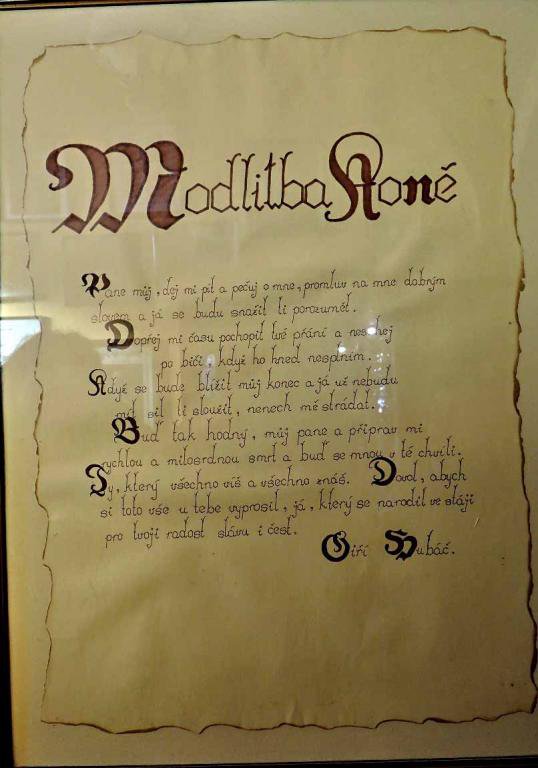 Modlitba Koně
Pane můj, dej mi pít a pečuj o mne, promluv na mne dobrým
slovem a já se budu snažit ti porozumět.
Dopřej mi času pochopit tvé přání a nesahej
po biči, když ho hned nesplním.
Když se bude blížit můj konec a já už nebudu
mít sil ti sloužit, nenech mě strádat.
Buď tak hodný, můj pane a připrav mi
rychlou a milosrdnou smrt a buď se mnou v té chvíli.
Ty, který všechno víš a všechno znáš. Dovol, abych
si toto vše u tebe vyprosil, já, který se narodil ve stáji
pro tvoji radost slávu i čest.
Jiří Hubáč.